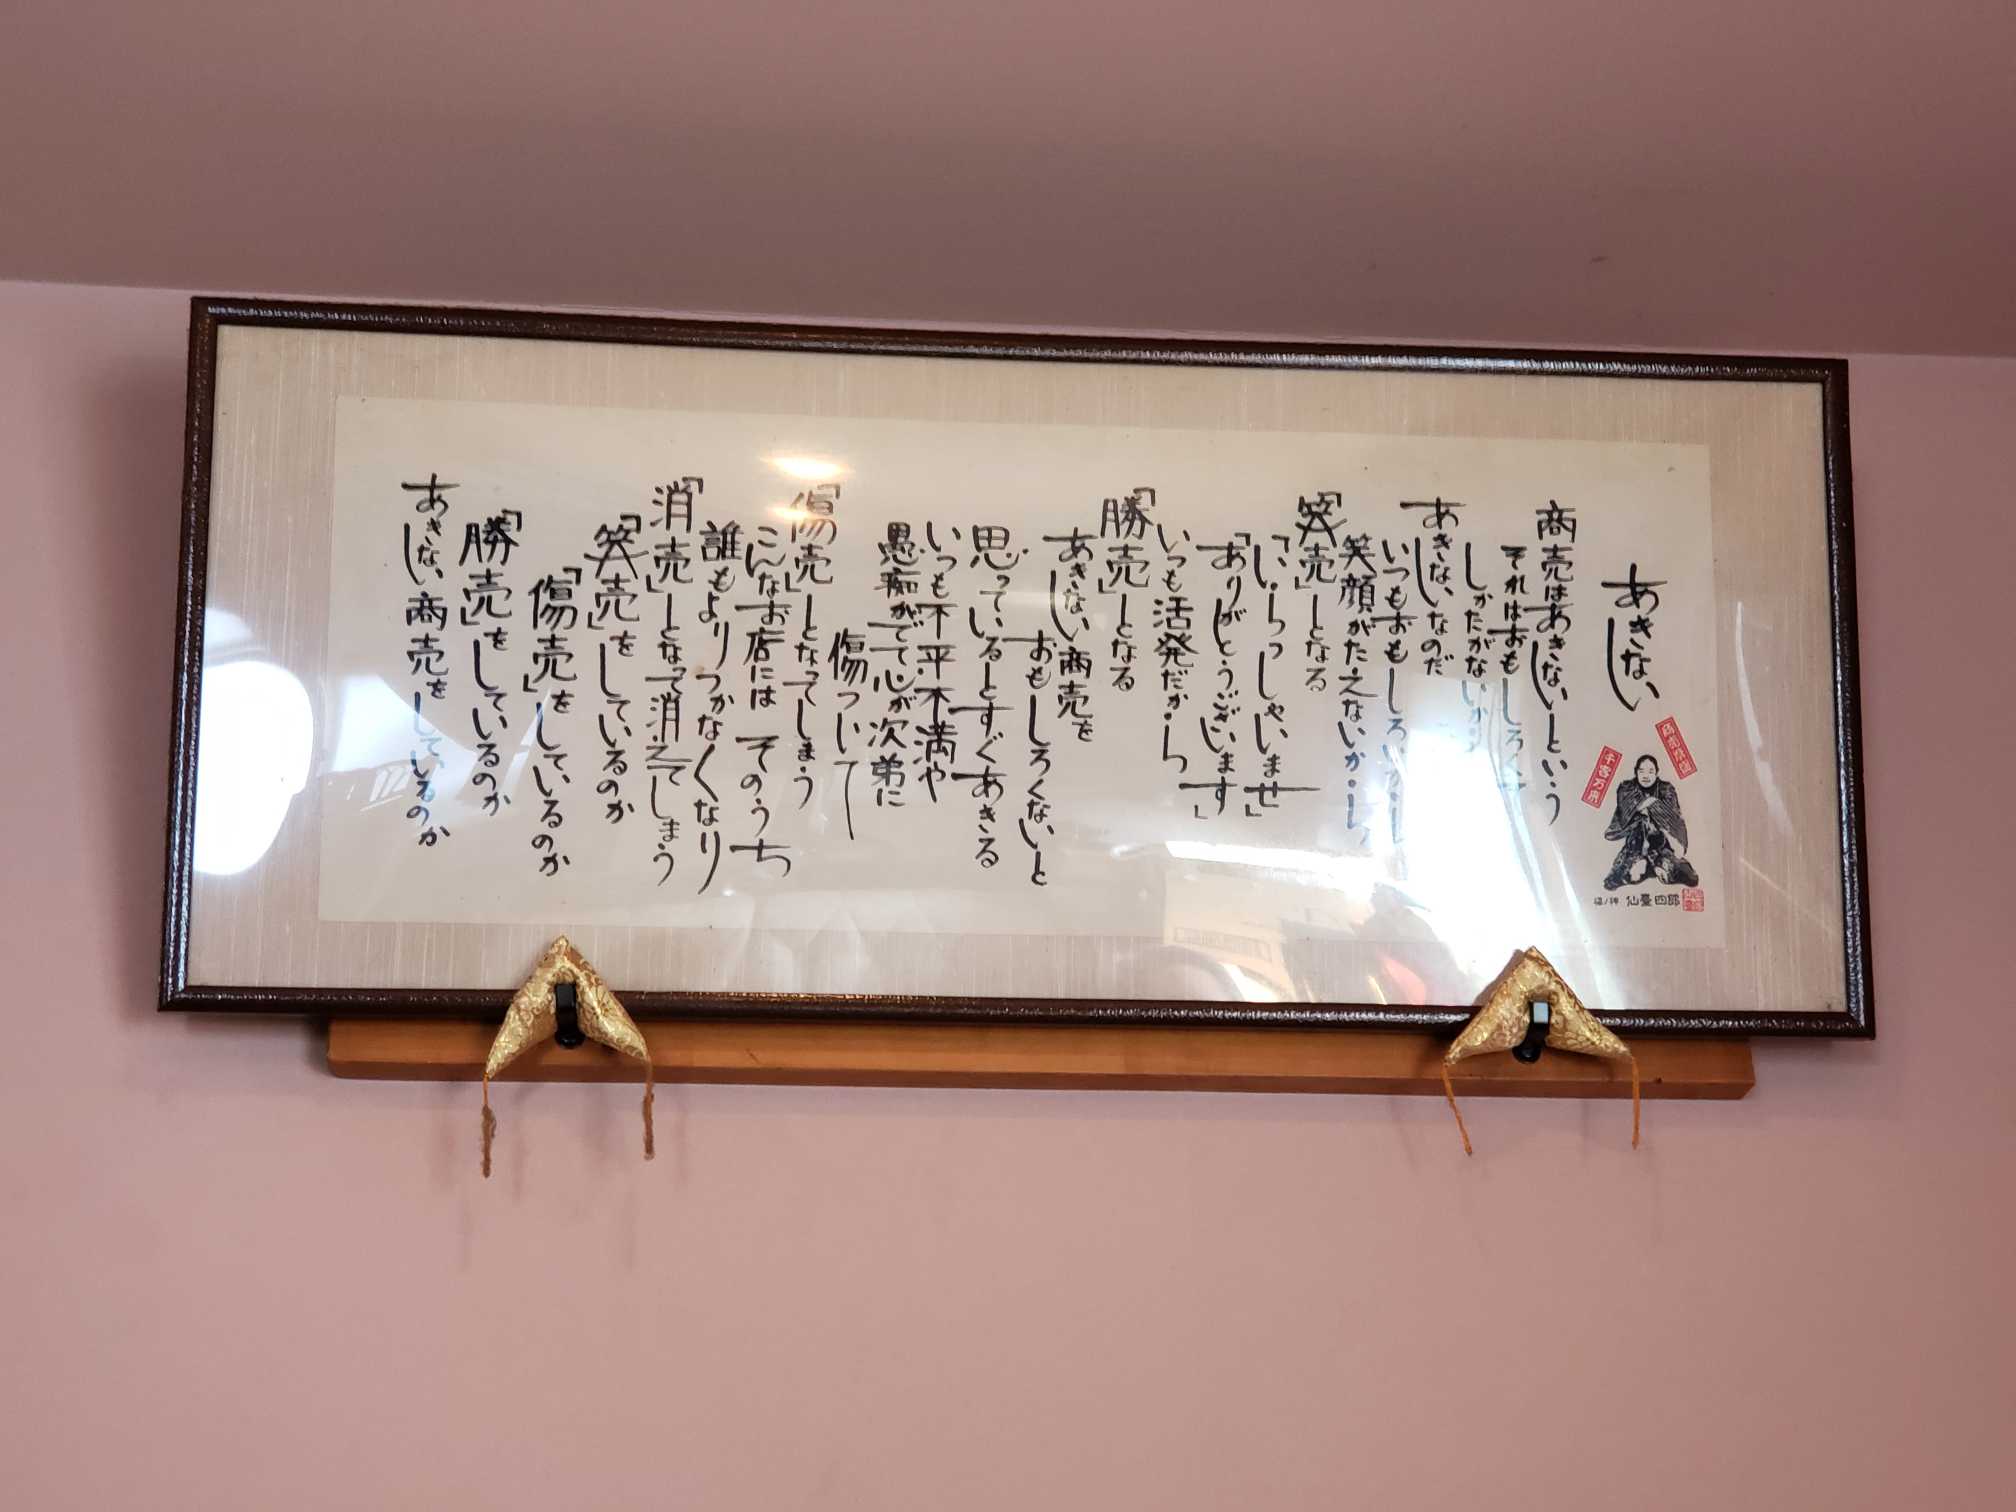 あきない
商売はあきないという
それはおもしろくて
しかたがないから
あきないなのだ
いつもおもしろいから
笑顔がたえないから
「笑売」となる
「いらっしゃいませ」
「ありがとうございます」
いつも活発だから
「勝売」となる
あきない商売を
おもしろくないと
思っているとすぐあきる
いつも不平不満や
愚痴がでて心が次第に
傷ついて
「傷売」となってしまう
こんなお店には そのうち
誰もよりつかなくなり
「消売」となって消えてしまう
「笑売」をしているのか
「傷売」をしているのか
「勝売」をしているのか
あきない商売をしているのか
商売繁盛
千客万来
福ノ神 仙臺四郎